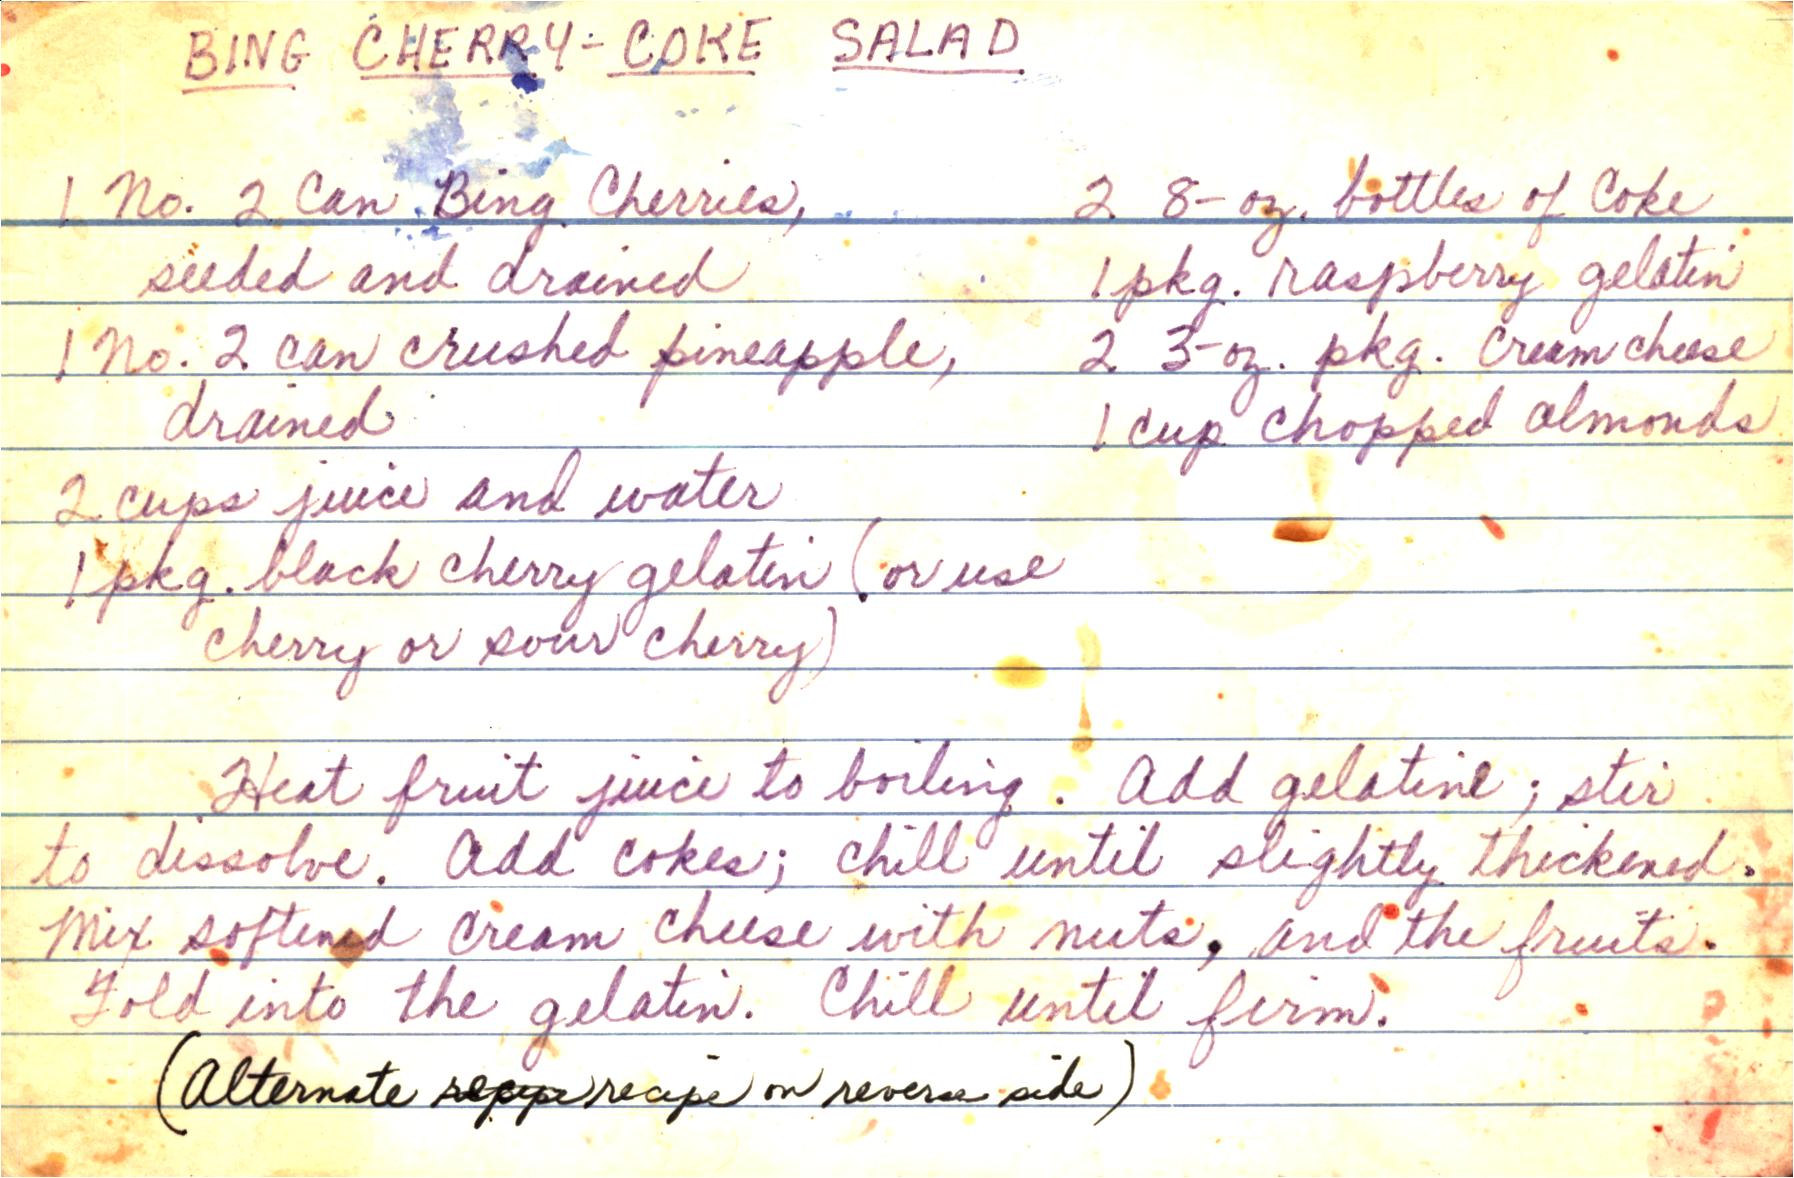 BING CHERRY-COKE SALAD
1 No. 2 Can Bing Cherries,
seeded and drained
1 No. 2 can crushed pineapple,
drained
2 cups juice and water
1 pkg. black cherry gelatin (or use
cherry or sour cherry)
2 8-oz. bottles of Coke
1 pkg. raspberry gelatin
2 3-oz. pkg. cream cheese
1 cup chopped almonds
Heat fruit juice to boiling. Add gelatine; stir
to dissolve. Add cokes; chill until slightly thickened.
Mix softened cream cheese with nuts, and the fruits.
Fold into the gelatin. Chill until firm.
(Alternate recipe on reverse side)